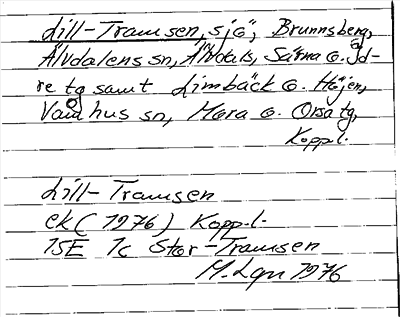 Lill-Tramsen, sjö, Brunnsberg,
Älvdalens sn, Älvdals, Särna o. Id-
re tg samt Limbäck o. Höjen,
Våmhus sn, Mora o. Orsa tg,
Kopp.l.
Lill-Tramsen
ek (1976) Kopp.l.
15E 1c Stor-Tramsen
M.Lgn 1976